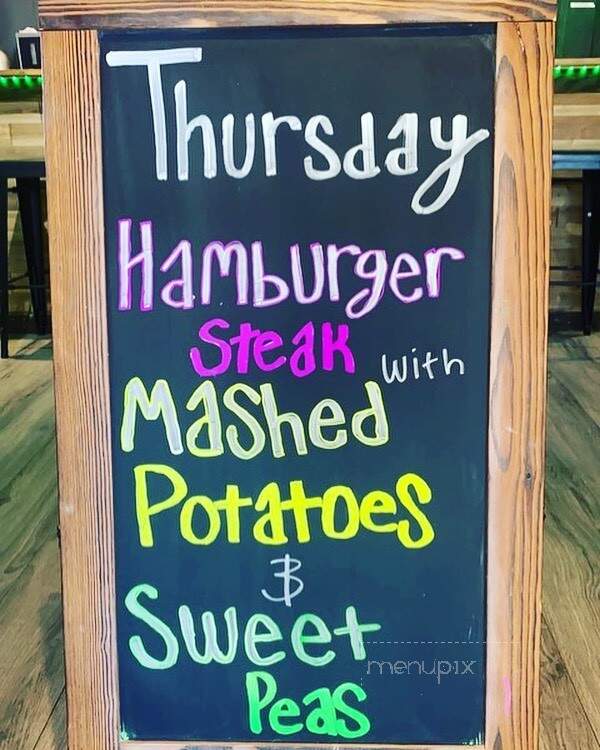 Thursday
Hamburger
Steak with
Mashed
Potatoes
&
Sweet
Peas
menupix